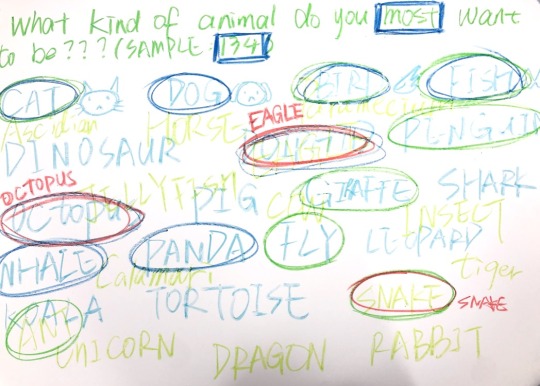 What kind of animal do you most want
to be??? (SAMPLE 134)
CAT DOG BIRD FISH
Ascidian HORSE EAGLE PENGUIN
DINOSAUR
OCTOPUS JELLYFISH PIG COW GIRAFFE SHARK
OCTOPU INSECT
WHALE PANDA FLY LEOPARD
Calamari tiger
KOALA TORTOISE SNAKE SNAKE
ANT
UNICORN DRAGON RABBIT